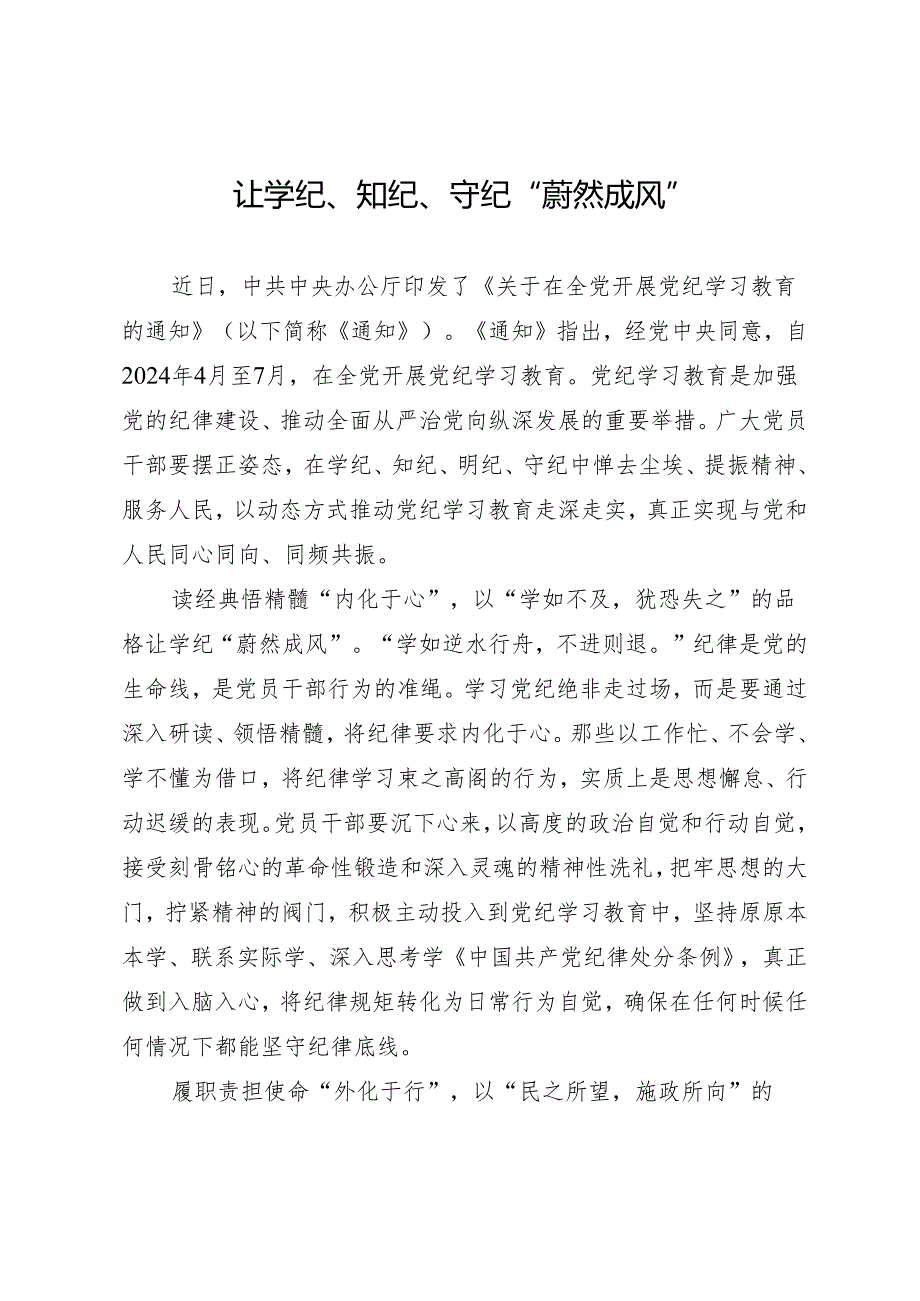 让学纪、知纪、守纪“蔚然成风”
近日，中共中央办公厅印发了《关于在全党开展党纪学习教育
的通知》（以下简称《通知》）。《通知》指出，经党中央同意，自
2024年4月至7月，在全党开展党纪学习教育。党纪学习教育是加强
党的纪律建设、推动全面从严治党向纵深发展的重要举措。广大党员
干部要摆正姿态，在学纪、知纪、明纪、守纪中惮去尘埃、提振精神、
服务人民，以动态方式推动党纪学习教育走深走实，真正实现与党和
人民同心同向、同频共振。
读经典悟精髓“内化于心”，以“学如不及，犹恐失之”的品
格让学纪“蔚然成风”。“学如逆水行舟，不进则退。”纪律是党的
生命线，是党员干部行为的准绳。学习党纪绝非走过场，而是要通过
深入研读、领悟精髓，将纪律要求内化于心。那些以工作忙、不会学、
学不懂为借口，将纪律学习束之高阁的行为，实质上是思想懈怠、行
动迟缓的表现。党员干部要沉下心来，以高度的政治自觉和行动自觉，
接受刻骨铭心的革命性锻造和深入灵魂的精神性洗礼，把牢思想的大
门，拧紧精神的阀门，积极主动投入到党纪学习教育中，坚持原原本
本学、联系实际学、深入思考学《中国共产党纪律处分条例》，真正
做到入脑入心，将纪律规矩转化为日常行为自觉，确保在任何时候任
何情况下都能坚守纪律底线。
履职责担使命“外化于行”，以“民之所望，施政所向”的